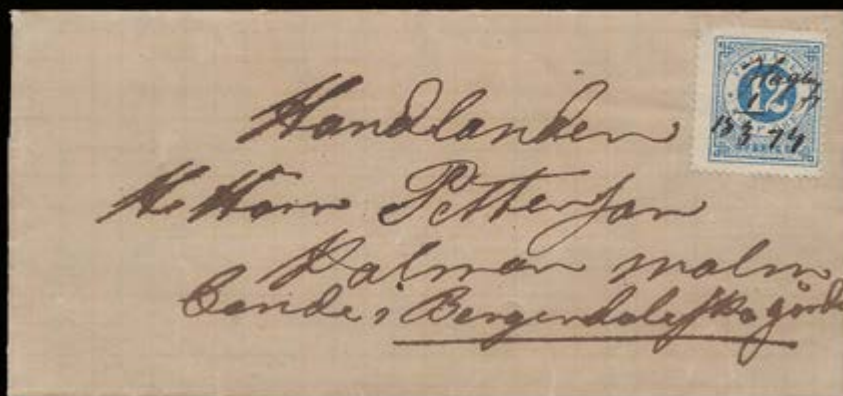 Handlanden
H Herr Petterson
Kalmar malm
Boende i Bergendalska gård
12
Hagby
13 3 74